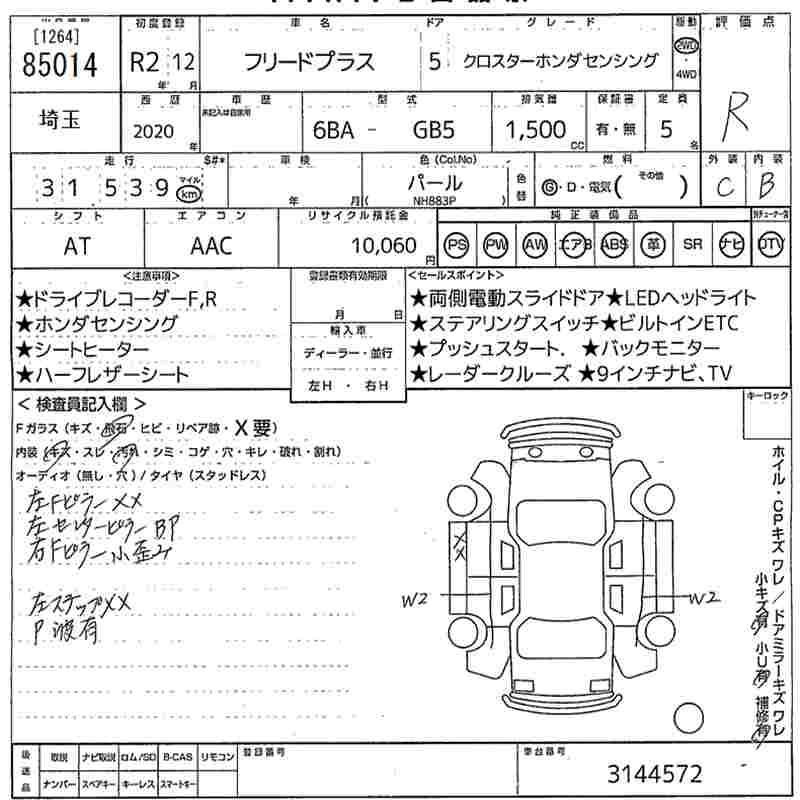 [1264]
85014
初度登録
R2 12
年 月
車名
フリードプラス
ドア
5
グレード
クロスターホンダセンシング
駆動
2WD
・
4WD
評価点
R
埼玉
西暦
2020
年
車歴
未記入は自家用
型式
6BA - GB5
排気量
1,500
CC
保証書
有・無
定員
5
名
走行
S#*
31539
マイル
km
車検
年 月
色(Col.No)
パール
( NH883P )
色替
燃料
G・D・電気( その他 )
外装
C
内装
B
シフト
AT
エアコン
AAC
リサイクル預託金
10,060
円
純正装備品
PS PW AW エアB ABS 革 SR ナビ
DTV
<注意事項>
★ドライブレコーダーF,R
★ホンダセンシング
★シートヒーター
★ハーフレザーシート
登録書類有効期限
月 日
輸入車
ディーラー・並行
左H ・ 右H
<セールスポイント>
★両側電動スライドドア★LEDヘッドライト
★ステアリングスイッチ★ビルトインETC
★プッシュスタート. ★バックモニター
★レーダークルーズ ★9インチナビ、TV
キーロック
<検査員記入欄>
Fガラス(キズ・飛石・ヒビ・リペア跡・X要)
内装(キズ・スレ・汚れ・シミ・コゲ・穴・キレ・破れ・割れ)
オーディオ(無し・穴)/タイヤ(スタッドレス)
左Fピラー XX
左センターピラー BP
右Fピラー小歪み
左ステップXX
P波有
XX
W2
W2
ホイル・CPキズワレ/ドアミラーキズワレ
小キズ有 小U有 補修有
後送品
取説 ナビ取説 ロム/SD B-CAS リモコン
ナンバー スペアキー キーレス スマートキー
登録番号
車台番号
3144572